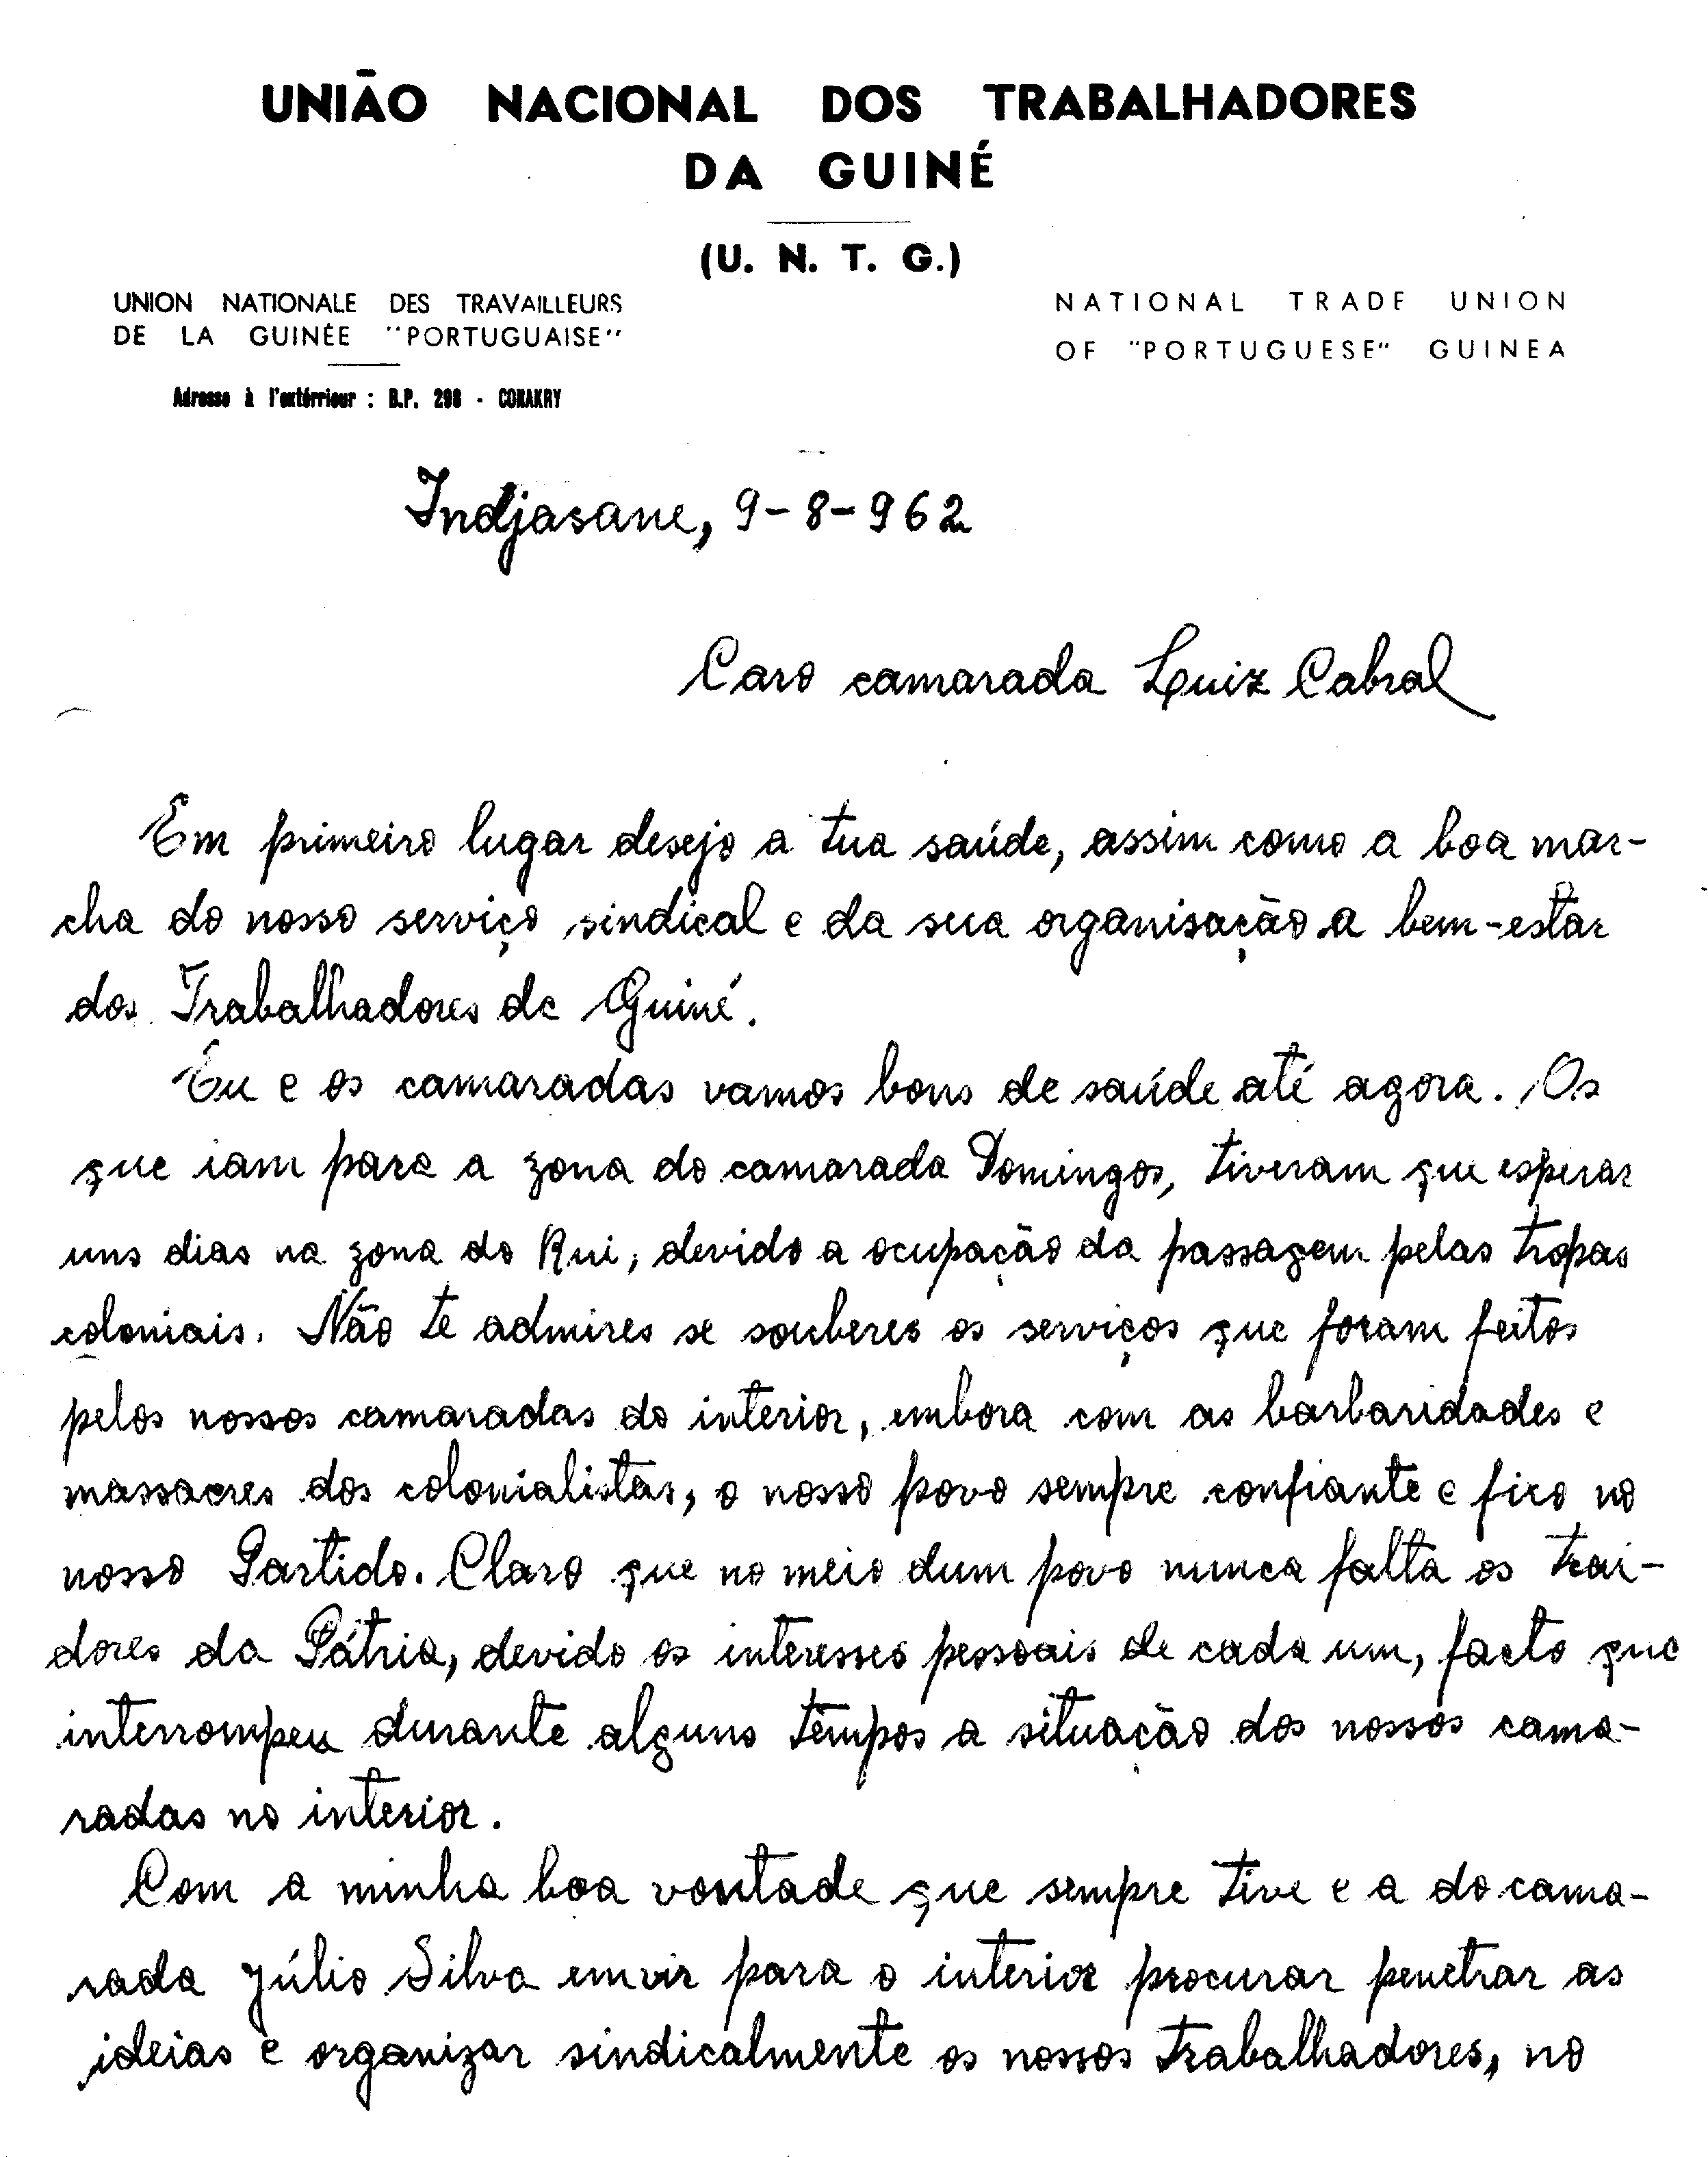 UNIÃO NACIONAL DOS TRABALHADORES
DA GUINÉ
(U. N. T. G.)
UNION NATIONALE DES TRAVAILLEURS
DE LA GUINÉE "PORTUGUAISE"
Adresse à l'extérrieur : B.P. 298 - CONAKRY
NATIONAL TRADE UNION
OF "PORTUGUESE" GUINEA
Indjasane, 9-8-962
Caro camarada Luiz Cabral
Em primeiro lugar desejo a tua saúde, assim como a boa mar-
cha do nosso serviço sindical e da sua organisação a bem-estar
dos Trabalhadores de Guiné.
Eu e os camaradas vamos bons de saúde até agora. Os
que iam para a zona do camarada Domingos, tiveram que esperar
uns dias na zona do Rui, devido a ocupação da passagem pelas tropas
coloniais. Não te admires se souberes os serviços que foram feitos
pelos nossos camaradas do interior, embora com as barbaridades e
massacres dos colonialistas, o nosso povo sempre confiante e fico no
nosso Partido. Claro que no meio dum povo nunca falta os trai-
dores da Pátria, devido os interesses pessoais de cada um, facto que
interrompeu durante alguns tempos a situação dos nossos cama-
radas no interior.
Com a minha boa vontade que sempre tive e a do cama-
rada Júlio Silva em vir para o interior procurar penetrar as
ideias e organizar sindicalmente os nossos trabalhadores, no